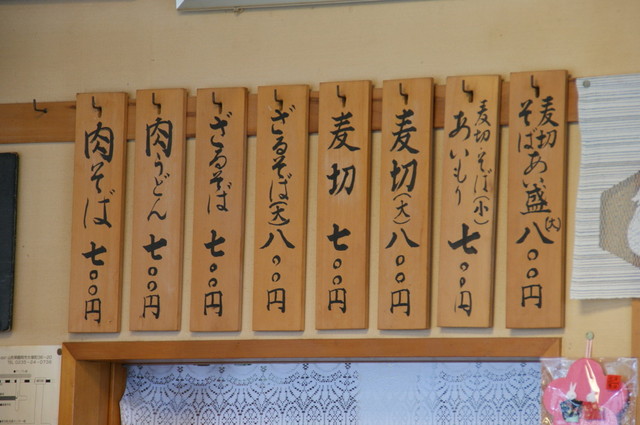 麦切
そばあい盛(大)八〇〇円
麦切・そば(小)
あいもり 七〇〇円
麦切(大)八〇〇円
麦切 七〇〇円
ざるそば(大)八〇〇円
ざるそば 七〇〇円
肉うどん 七〇〇円
肉そば 七〇〇円